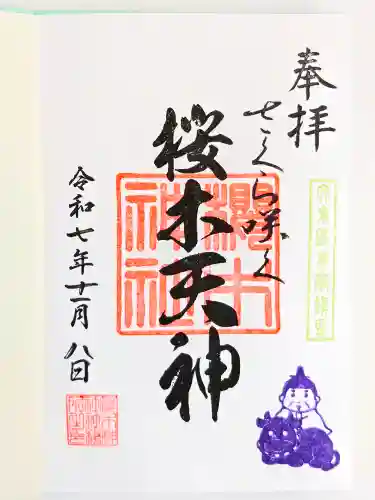 奉拝
さくら咲く
桜木天神
櫻木
神社
令和七年十一月八日